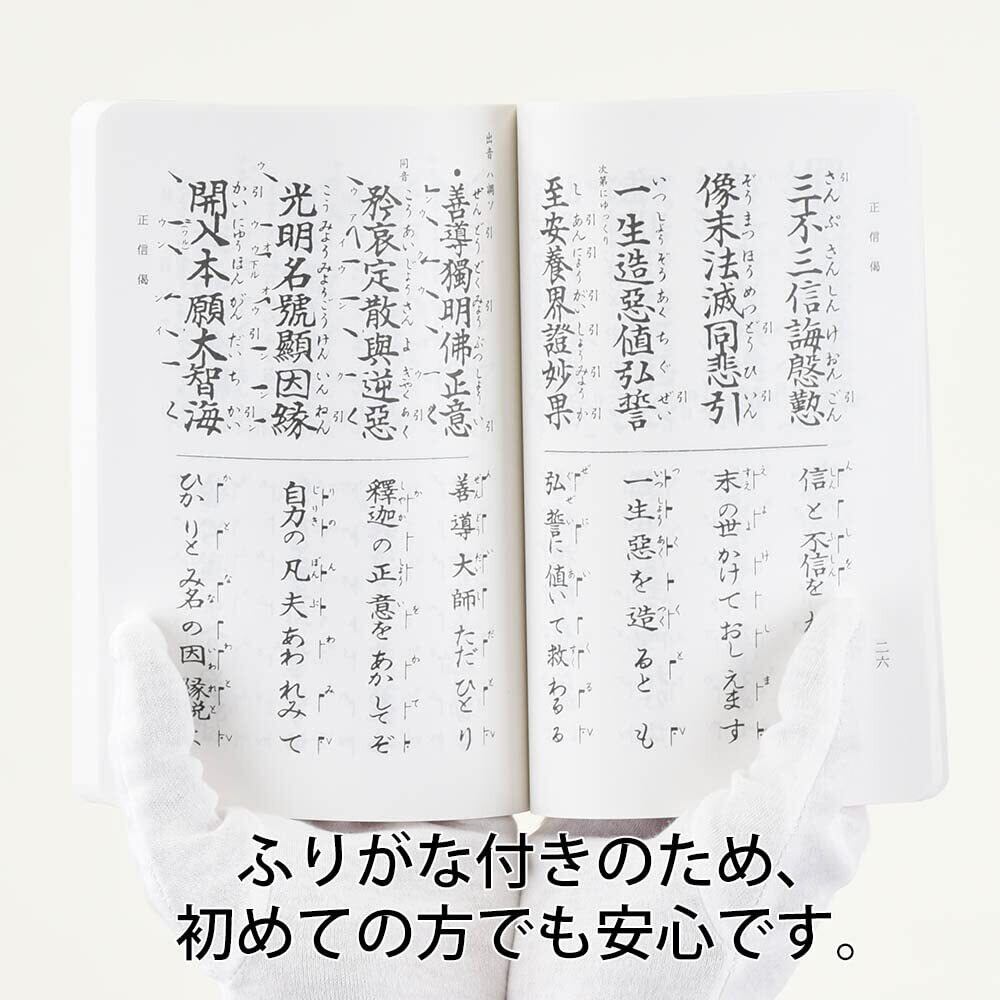 正信偈
三不三信誨慇懃
像末法滅同悲引
一生造惡値弘誓
次第にゆっくり
至安養界證妙果
信と不信を
末の世かけておしえます
一生惡を造るとも
弘誓に値いて救わるる
二六
出音ハ調ソ
善導獨明佛正意
同音
矜哀定散與逆惡
光明名號顯因縁
開入本願大智海
正信偈
善導大師ただひとり
釋迦の正意をあかしてぞ
自力の凡夫あわれみて
ひかりとみ名の因縁
ふりがな付きのため、
初めての方でも安心です。